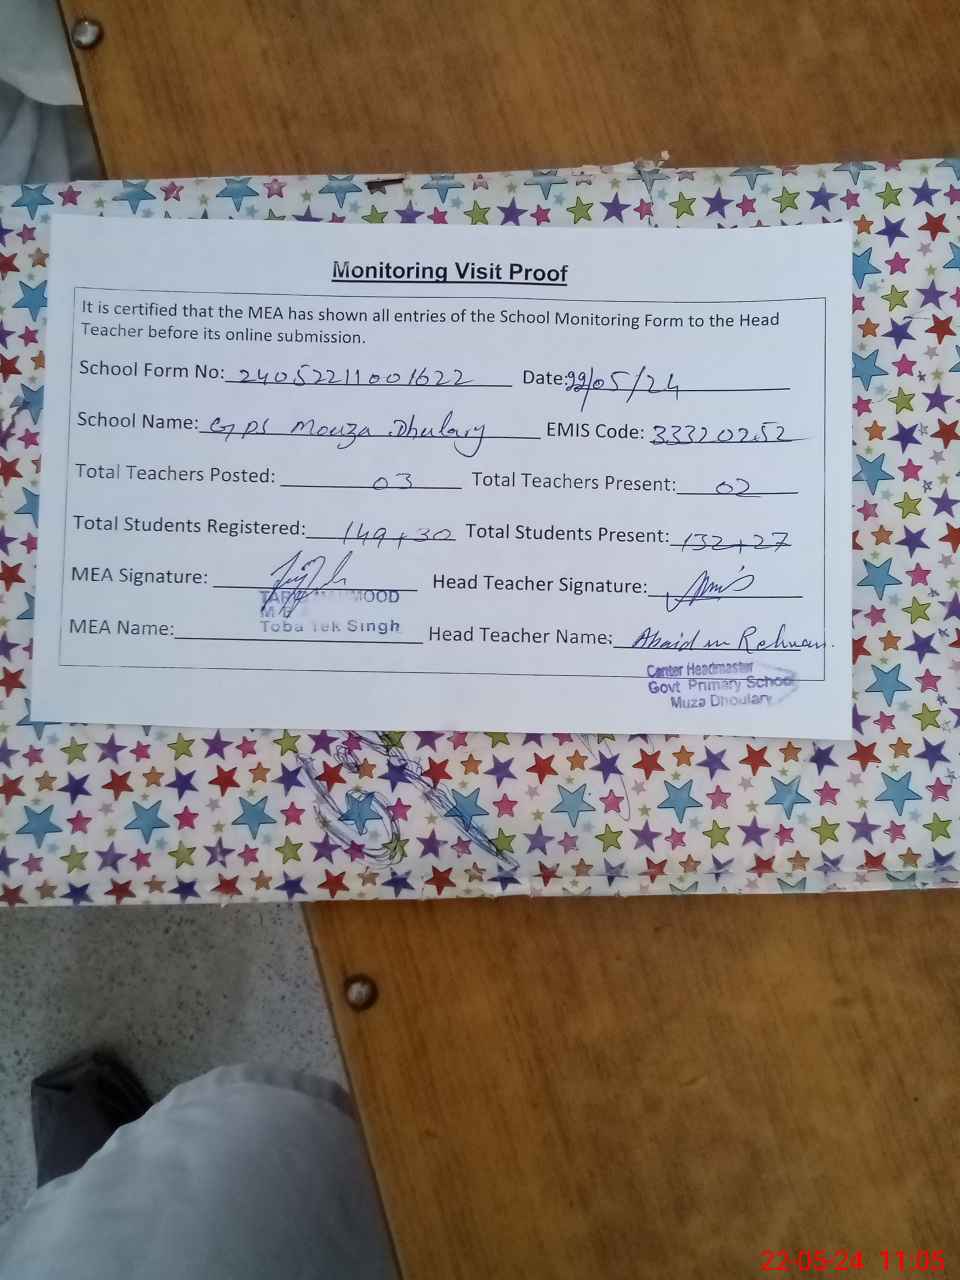 Monitoring Visit Proof
It is certified that the MEA has shown all entries of the School Monitoring Form to the Head
Teacher before its online submission.
School Form No: 24052211001622 Date: 22/05/24
School Name: GPS Mouza Dhulary EMIS Code: 33320252
Total Teachers Posted: 03 Total Teachers Present: 02
Total Students Registered: 149+30 Total Students Present: 132+27
MEA Signature: Head Teacher Signature:
MEA Name: Toba Tek Singh Head Teacher Name: Abaid ur Rehman
Center Headmaster
Govt Primary School
Muza Dhoulary
22-05-24 11:05